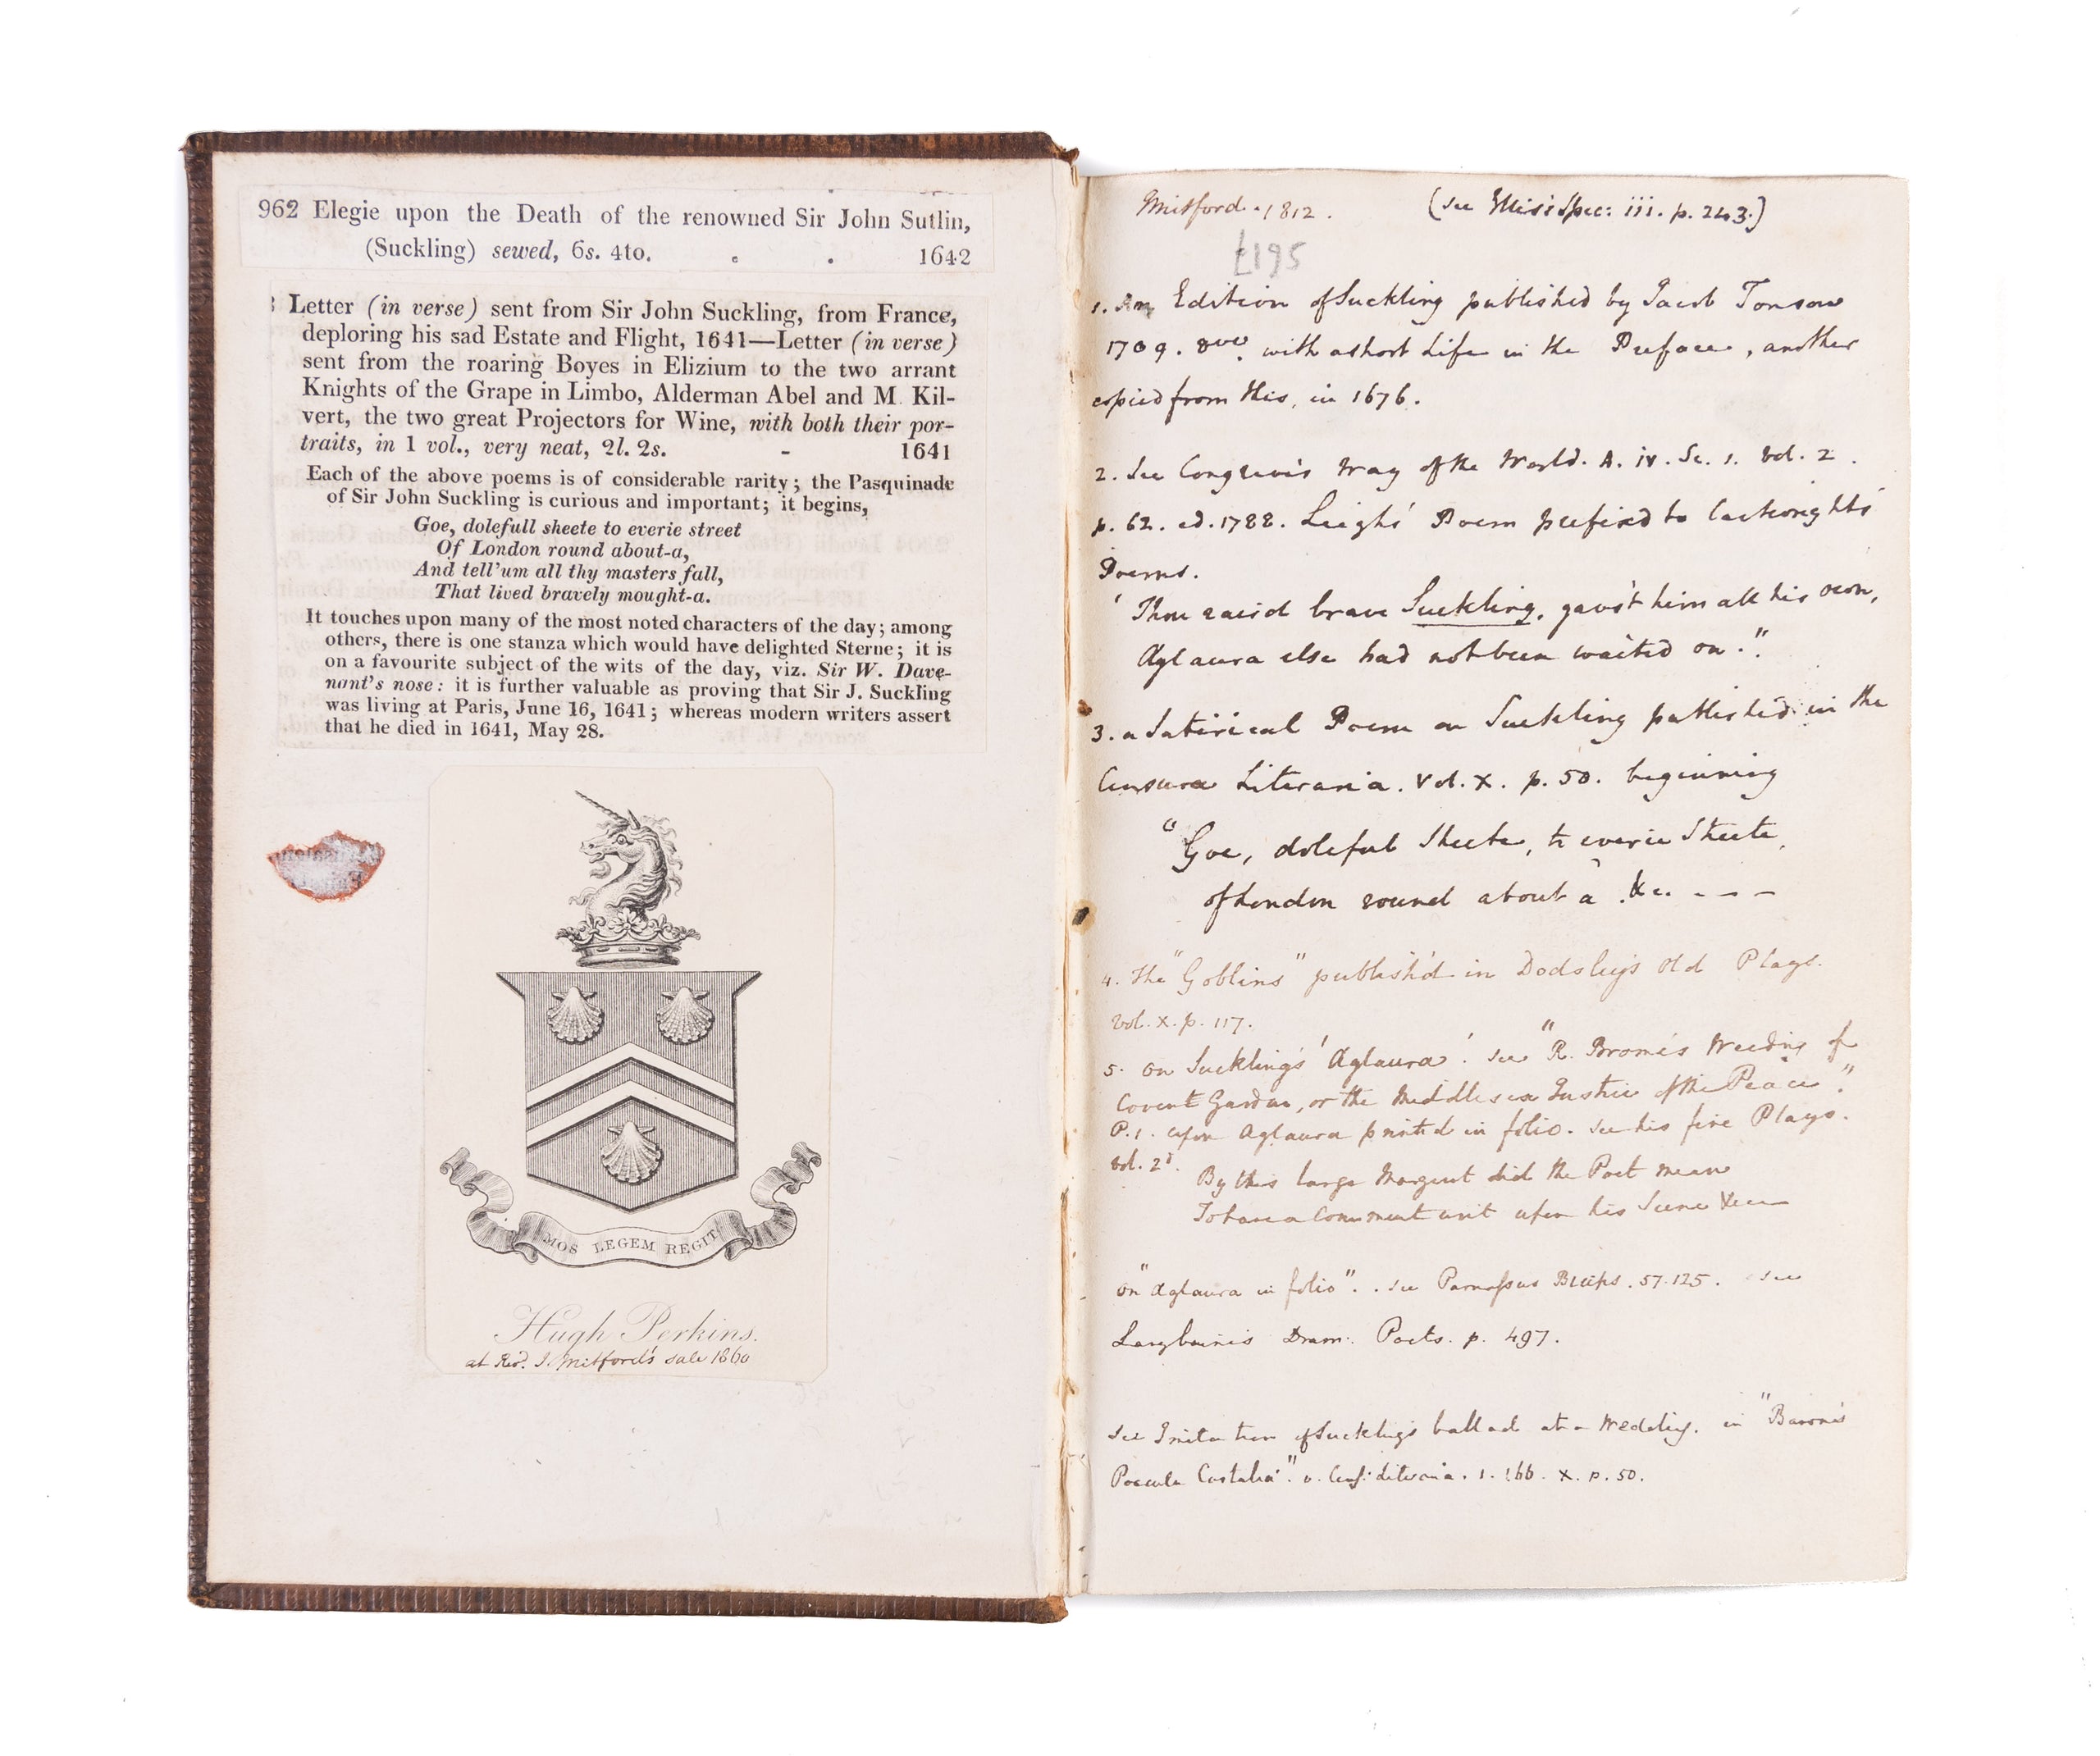 962 Elegie upon the Death of the renowned Sir John Sutlin,
(Suckling) sewed, 6s. 4to. . . 1642
Letter (in verse) sent from Sir John Suckling, from France,
deploring his sad Estate and Flight, 1641—Letter (in verse)
sent from the roaring Boyes in Elizium to the two arrant
Knights of the Grape in Limbo, Alderman Abel and M. Kil-
vert, the two great Projectors for Wine, with both their por-
traits, in 1 vol., very neat, 2l. 2s. - 1641
Each of the above poems is of considerable rarity; the Pasquinade
of Sir John Suckling is curious and important; it begins,
Goe, dolefull sheete to everie street
Of London round about-a,
And tell'um all thy masters fall,
That lived bravely mought-a.
It touches upon many of the most noted characters of the day; among
others, there is one stanza which would have delighted Sterne; it is
on a favourite subject of the wits of the day, viz. Sir W. Dave-
nant's nose: it is further valuable as proving that Sir J. Suckling
was living at Paris, June 16, 1641; whereas modern writers assert
that he died in 1641, May 28.
MOS LEGEM REGIT
Hugh Perkins.
at Revd. J. Mitford's sale 1860
Mitford. 1812. (see Ellis's Spec: iii. p. 243.)
£195
1. An Edition of Suckling published by Jacob Tonson
1709. 8vo. with a short Life in the Preface, another
copied from this, in 1676.
2. See Congreve's Way of the World. A. iv. Sc. 1. Vol. 2.
p. 62. ed. 1788. Leigh's Poem prefixed to Cartwright's
Poems.
'Thou rais'd brave Suckling, gav'st him all his own,
Aglaura else had not been waited on."
3. a Satirical Poem on Suckling publish'd in the
Censura Literaria. Vol. X. p. 50. beginning
"Goe, doleful Sheete, to everie Streete,
of London round about a &c. - - -
4. The "Goblins" publish'd in Dodsley's Old Plays.
vol. X. p. 117.
5. on Suckling's 'Aglaura'. see "R. Brome's Weeding of
Covent Garden, or the Middlesex Justice of the Peace".
P. 1. upon Aglaura printed in folio. see his five Plays.
vol. 2d.
By this large Margent did the Poet mean
To have a Comment writ upon his Scene &c
on "Aglaura in folio". . see Parnassus Biceps. 57. 125. see
Langbaine's Dram: Poets. p. 497.
See Imitation of Suckling's ballad at a Wedding. in "Baron's
Pocula Castalia". v. Cens: Literaria. 1. 166. X. p. 50.